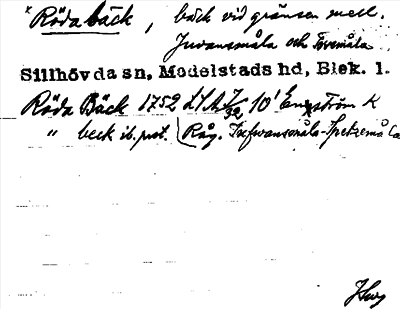 × Rödabäck, bäck vid gränsen mell.
Juvansmåla och Toremåla
Sillhövda sn, Medelstads hd, Blek. l.
Röda Bäck 1752 LSA 7/32 10¹ Engström K
" beck ib. prot. (Råg. Tufwansmåla-